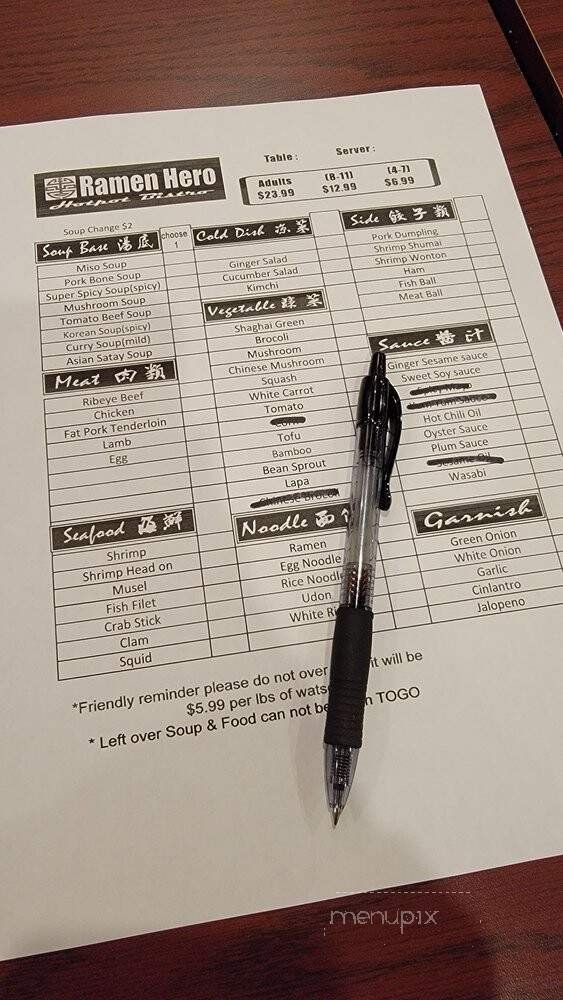 Ramen Hero
Hotpot Bistro
Table : Server :
Adults (8-11) (4-7)
$23.99 $12.99 $6.99
Soup Change $2
Soup Base 湯底 choose 1
Miso Soup
Pork Bone Soup
Super Spicy Soup(spicy)
Mushroom Soup
Tomato Beef Soup
Korean Soup(spicy)
Curry Soup(mild)
Asian Satay Soup
Meat 肉類
Ribeye Beef
Chicken
Fat Pork Tenderloin
Lamb
Egg
Seafood 海鮮
Shrimp
Shrimp Head on
Musel
Fish Filet
Crab Stick
Clam
Squid
Cold Dish 涼菜
Ginger Salad
Cucumber Salad
Kimchi
Vegetable 蔬菜
Shaghai Green
Brocoli
Mushroom
Chinese Mushroom
Squash
White Carrot
Tomato
Corn
Tofu
Bamboo
Bean Sprout
Lapa
Chinese Brocoli
Noodle 面
Ramen
Egg Noodle
Rice Noodle
Udon
White
Side 餃子類
Pork Dumpling
Shrimp Shumai
Shrimp Wonton
Ham
Fish Ball
Meat Ball
Sauce 醬汁
Ginger Sesame sauce
Sweet Soy sauce
Spicy Mayo
Yum Yum Sauce
Hot Chili Oil
Oyster Sauce
Plum Sauce
Sesame Oil
Wasabi
Garnish
Green Onion
White Onion
Garlic
Cinlantro
Jalopeno
*Friendly reminder please do not over it will be
$5.99 per lbs of
* Left over Soup & Food can not be TOGO
menupix